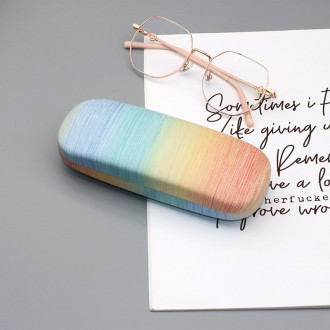 Sometimes i F
like giving u
Reme
ve a lo
herfucke
rove wro